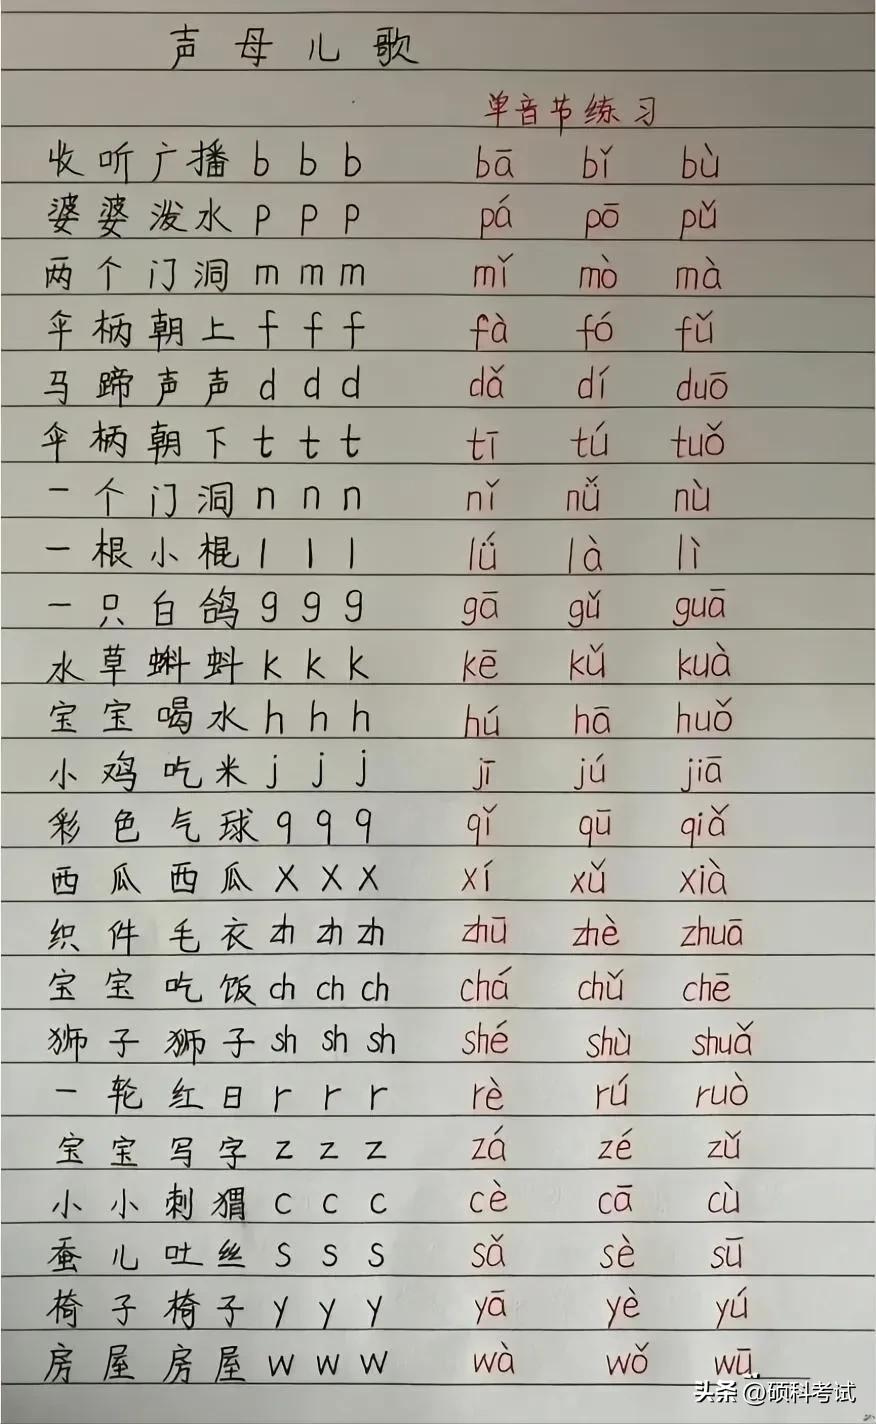 声母儿歌
单音节练习
收听广播 b b b bā bǐ bù
婆婆泼水 p p p pá pō pǔ
两个门洞 m m m mǐ mò mà
伞柄朝上 f f f fà fó fǔ
马蹄声声 d d d dǎ dí duō
伞柄朝下 t t t tī tú tuǒ
一个门洞 n n n nǐ nǚ nù
一根小棍 l l l lǘ là lì
一只白鸽 g g g gā gǔ guā
水草蝌蚪 k k k kē kǔ kuà
宝宝喝水 h h h hú hā huǒ
小鸡吃米 j j j jī jú jiā
彩色气球 q q q qǐ qū qiǎ
西瓜西瓜 x x x xí xǔ xià
织件毛衣 zh zh zh zhū zhè zhuā
宝宝吃饭 ch ch ch chá chǔ chē
狮子狮子 sh sh sh shé shù shuǎ
一轮红日 r r r rè rú ruò
宝宝写字 z z z zá zé zǔ
小小刺猬 c c c cè cā cù
蚕儿吐丝 s s s sǎ sè sū
椅子椅子 y y y yā yè yú
房屋房屋 w w w wà wǒ wū
头条 @硕科考试